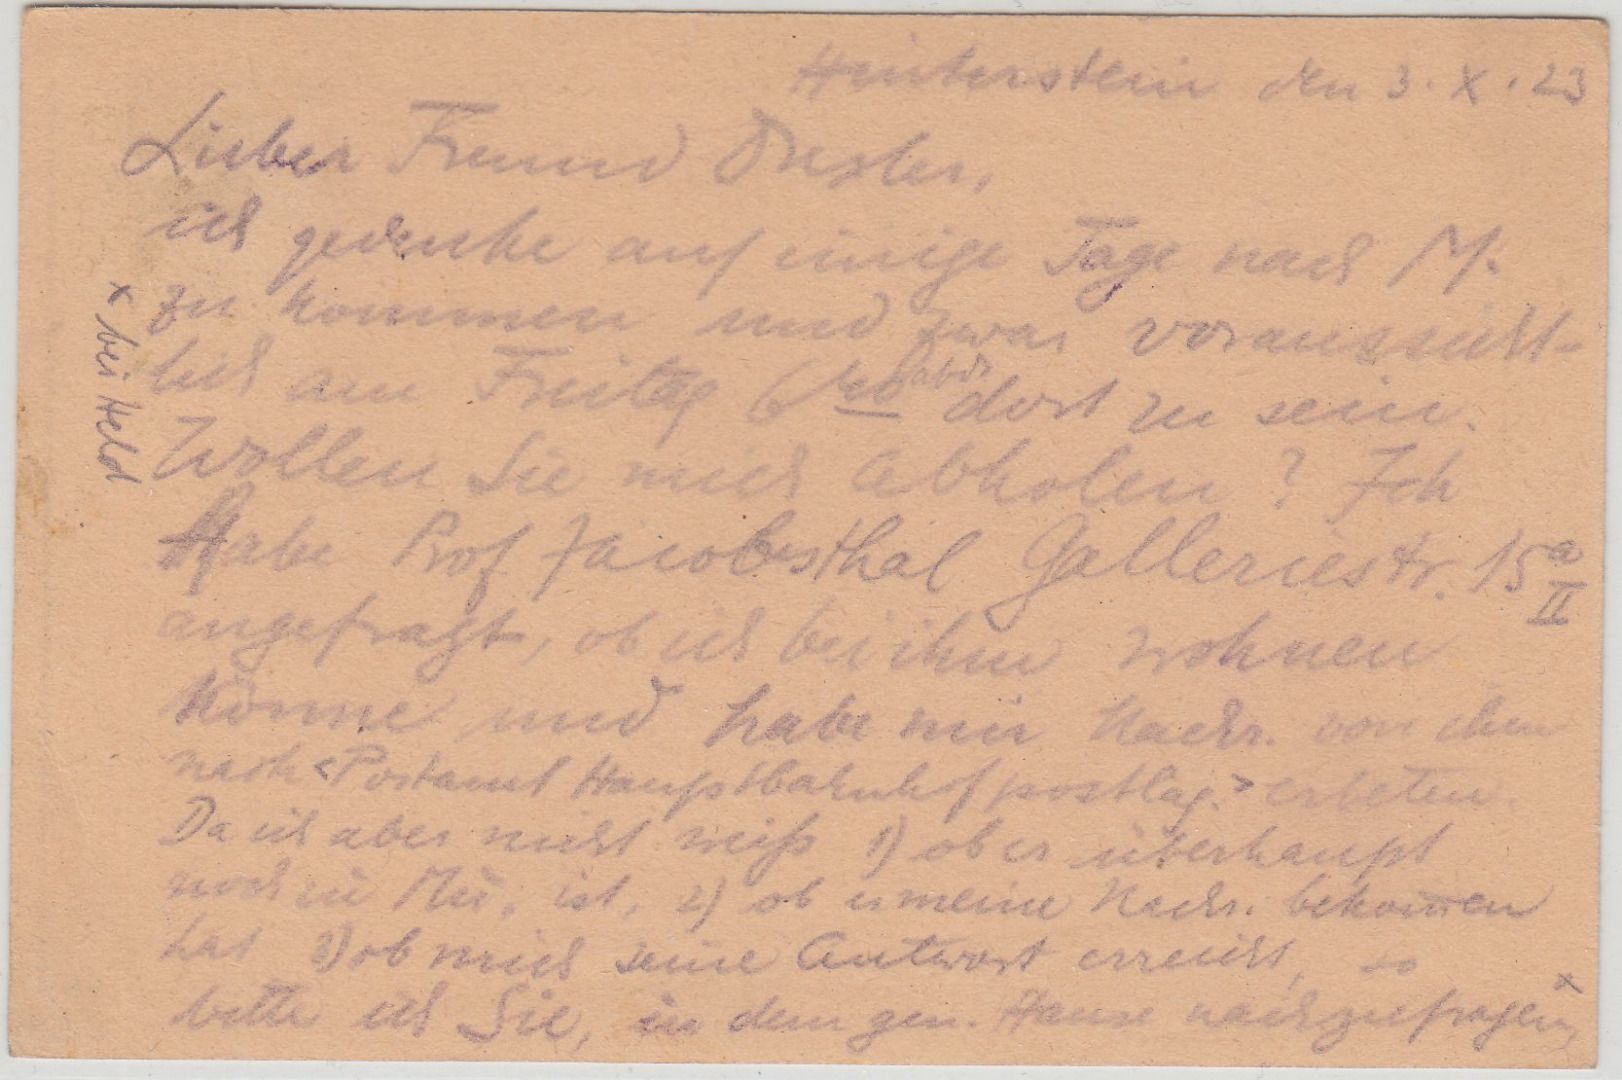 Hinterstein den 3. X. 23
Lieber Freund Dresler,
ich gedenke auf einige Tage nach M.
zu kommen und zwar voraussicht-
lich am Freitag 6 abds dort zu sein.
Wollen Sie mich abholen? Ich
Habe Prof Jacobsthal Galleriestr. 15a II
angefragt, ob ich bei ihm wohnen
könne und habe mir Nachr. von ihm
nach <Postamt Hauptbahnhof postlag.> erbeten.
Da ich aber nicht weiß 1) ob er überhaupt
noch in Mü. ist, 2) ob er meine Nachr. bekommen
hat 3) ob mich seine Antwort erreicht, so
bitte ich Sie, in dem gen. Hause nachzufragen x,
x bei Held